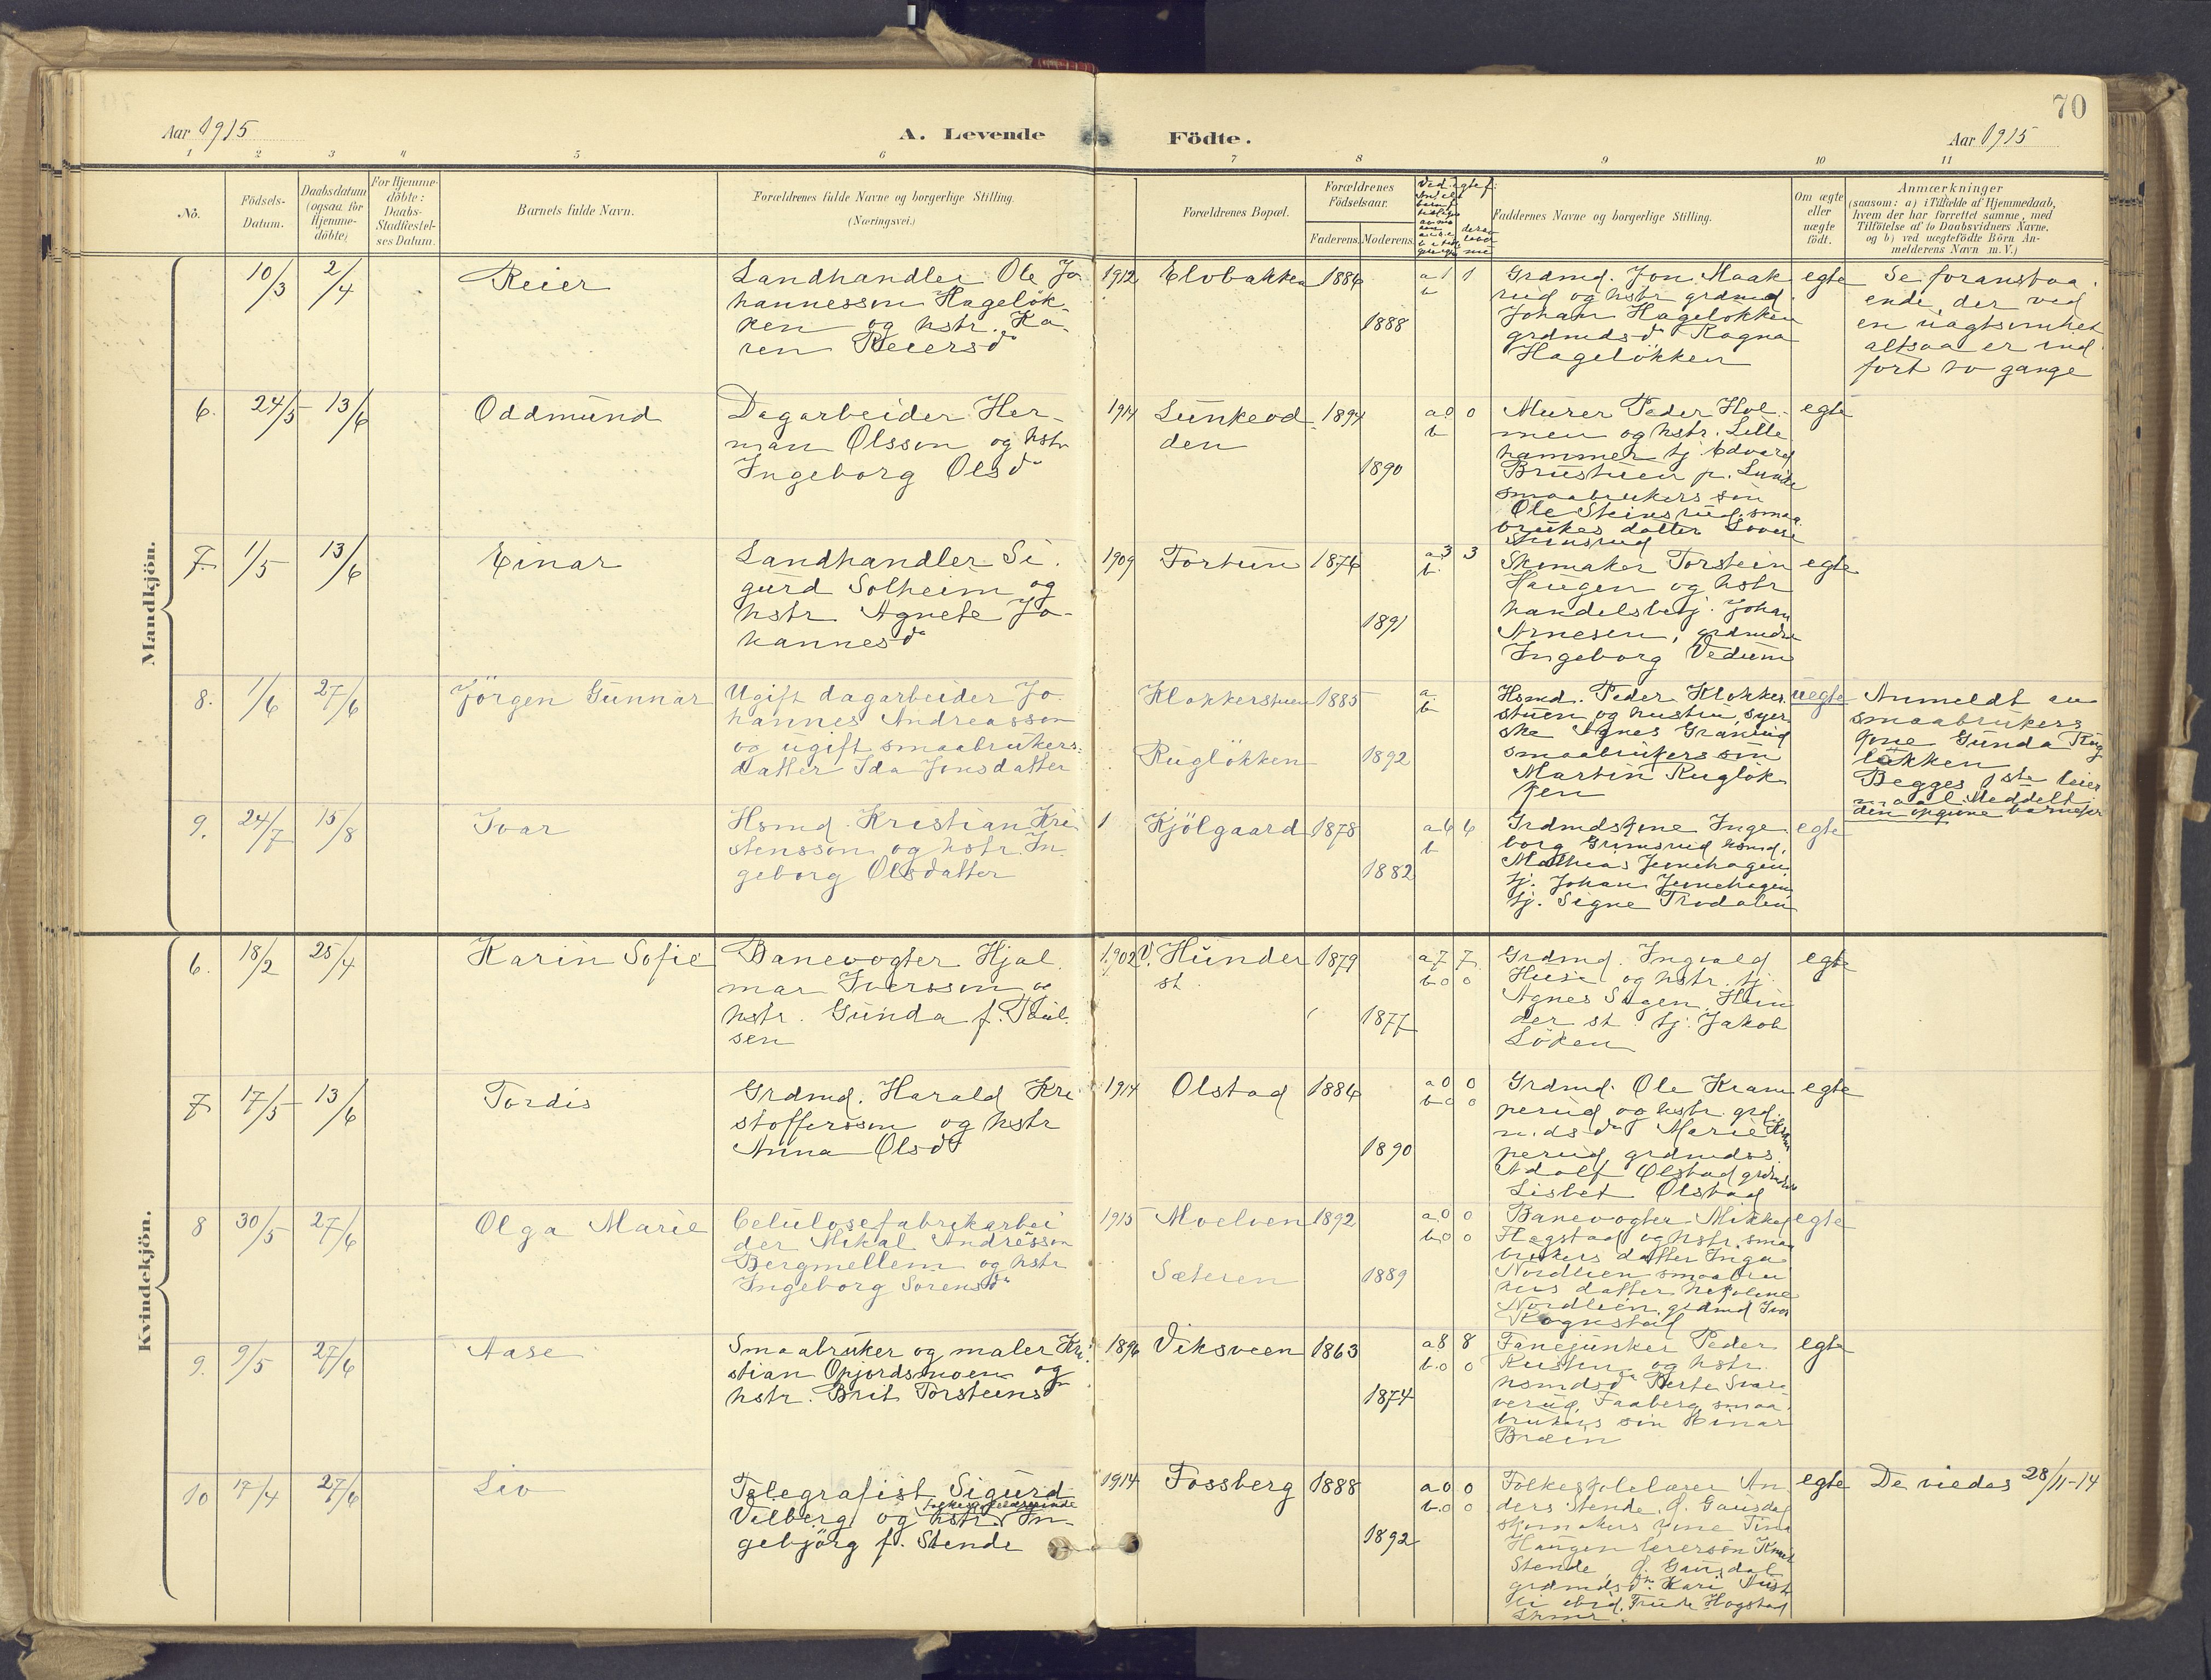 70
Aar 1915
A. Levende Födte.
Aar 1915
1 2 3 4 5 6 7 8 9 10 11
No.
Födsels-
Datum.
Daabsdatum
(ogsaa for
Hjemme-
döbte)
For Hjemme-
döbte:
Daabs-
Stadfæstel-
ses Datum.
Barnets fulde Navn.
Forældrenes fulde Navne og borgerlige Stilling.
(Næringsvei.)
Forældrenes Bopæl.
Forældrenes
Födselsaar.
Faderens. Moderens.
Faddernes Navne og borgerlige Stilling.
Om ægte
eller
uægte
födt.
Anmærkninger
(saasom: a) i Tilfælde af Hjemmedaab,
hvem der har forrettet samme, med
Tilföielse af to Daabsvidners Navne,
og b) ved uægtefödte Börn An-
melderens Navn m. V.)
Mandkjön.
10/3 2/4 Reier
Landhandler Ole Jo
hannesson Hagelök
ken og hstr. Ka-
ren Reiersdr
1912 Elvbakken 1886 1888
a 1 1
b
Grdmd. Jon Maak
rud og hstr grdmd.
Johan Hageløkken
grdmdsdr Ragna
Hageløkken
egte
Se foranstaa
ende, der ved
en uagtsomhet
altsaa er ind
ført to gange
6. 24/5 13/6 Oddmund
Dagarbeider Her-
man Olsson og hstr
Ingeborg Olsdr
1914 Lunkeod
den
1894 1890
a 0 0
b
Murer Peder Hol-
men og hstr. Lille
hammer tj. Edvard
Brustuen p. Lunde
smaabrukers søn
Ole Steinsrud, smaa
brukers datter Lovise
Steinsrud
egte
7. 1/5 13/6 Einar
Landhandler Si-
gurd Solheim og
hstr Agnete Jo-
hannesdr
1909 Fortun 1876 1891
a 3 3
b
Skomaker Torstein
Haugen og hstr
handelsbetj. Johan
Arnesen, grdmdsdr
Ingeborg Vedum
egte
8. 1/6 27/6 Jörgen Gunnar
Ugift dagarbeider Jo
hannes Andreasson
og ugift smaabrukers-
datter Ida Jonsdatter
Klokkerstuen 1885
Ruglökken 1892
a
b
Hsmd. Peder Klokker
stuen og hustru, syer
ske Agnes Granrud
smaabrukers søn
Martin Ruglök
ken
uegte
Anmeldt av
smaabrukers
kone Gunda Rug
løkken
Begges 1ste leier
maal. Meddelt
den opgivne barnefar
9. 24/7 15/8 Ivar
Hsmd. Kristian Kri
stensson og hstr. In
geborg Olsdatter
1 Kjölgaard 1878 1882
a 6 6
b
Grdmdskone Inge
borg Grimsrud hsmd.
Mathias Jevnehagen
tj. Johan Jevnehagen
tj. Signe Trodalen
egte
Kvindekjön.
6. 18/2 25/4 Karin Sofie
Banevogter Hjal
mar Iversson og
hstr. Gunda f. Paul
sen
1902 V. Hunder
st.
1879 1877
a 7 7
b 0 0
Grdmd. Ingvald
Huse og hstr. tj.
Agnes Sagen, Hun
der st. tj. Jakob
Löken
egte
7 17/5 13/6 Tordis
Grdmd. Harald Kri
stoffersson og hstr
Anna Olsdr
1914 Olstad 1886 1890
a 0 0
b 0 0
Grdmd. Ole Kram
perud og hstr. grd.
m.dsdr Marie Kram
perud, grdmdss.
Adolf Olstad grdmdsdr
Lisbet Olstad
egte
8 30/5 27/6 Olga Marie
Celulosefabrikarbei
der Mikal Andrésson
Bergmellem og hstr
Ingeborg Sorensdr
1915 Moelven 1892
Sæteren 1889
a 0 0
b 0 0
Banevogter Mikkel
Flagstad og hstr. smaa
brukers datter Inga
Nordlien smaabru
kers datter
Nordlien, grdmd Ivar
Rognstad
egte
9. 9/5 27/6 Aase
Smaabruker og maler Kri
stian Opjordsmoen og
hstr. Brit Torsteinsdr
1896 Viksveen 1863 1874
a 8 8
b.0 0
Fanejunker Peder
Rusten og hstr.
hsmdsdr Berte Svare
verud, Faaberg, smaa
brukers søn Einar
Bræin
egte
10 17/4 27/6 Liv
Telegrafist Sigurd
folkeskolelærerinde
Vilberg og hstr. In-
gebjörg f. Stende
1914 Fossberg 1888 1892
a 0 0
b.0 0
Folkeskolelærer An
ders Stende, Ø. Gausdal
skomakers kone Tina
Haugen lærersøn Knut
Stende, Ø. Gausdal
grdmdsdr. Kari Aust
li ibid. Frude Hogstad
egte
De viedes 28/11-14